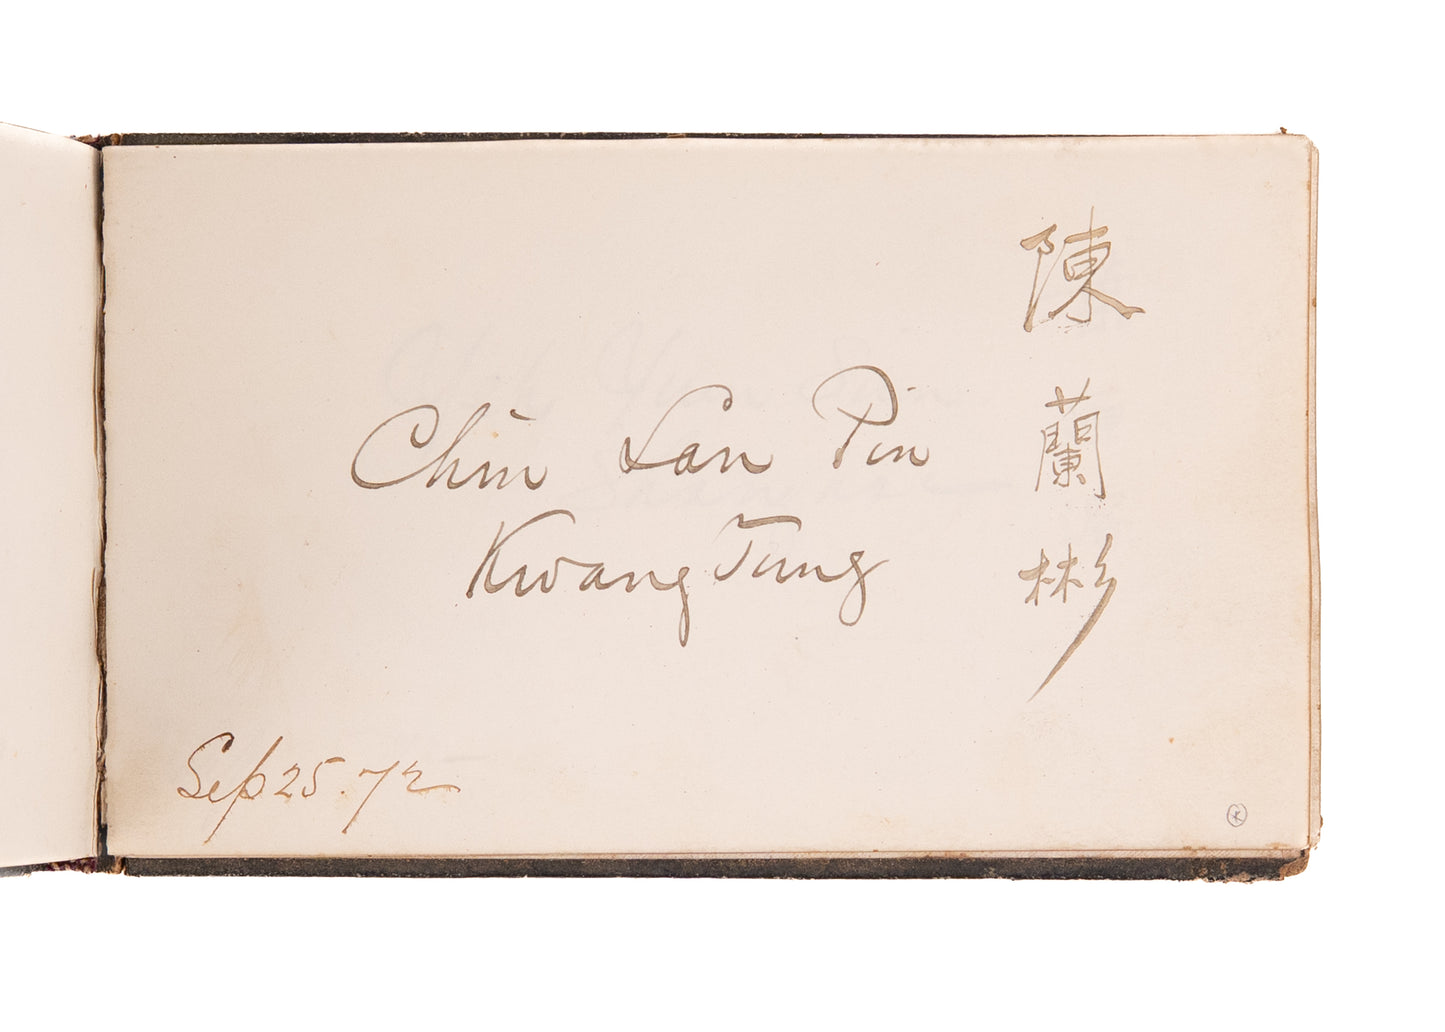 陳蘭彬
Chin Lan Pin
Kwang Tung
Sep 25. 72
K